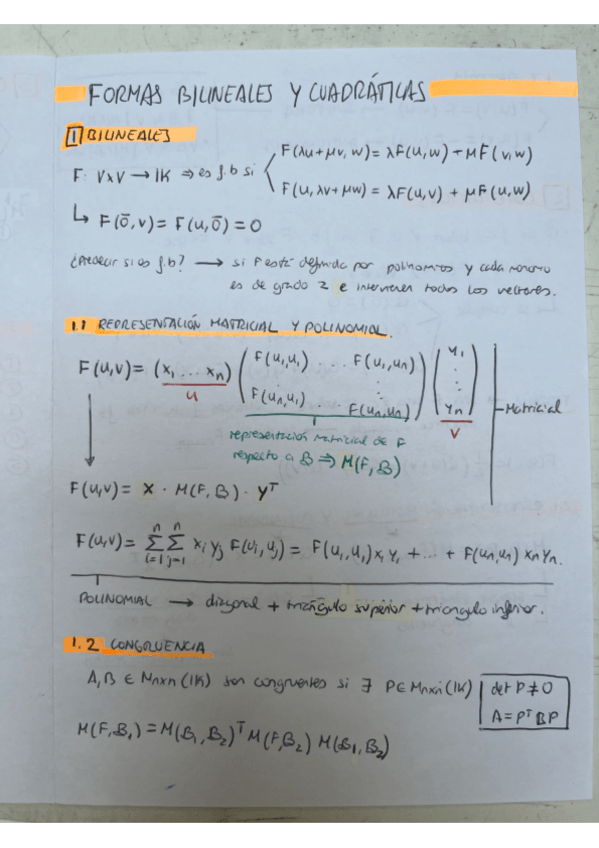 FORMAS BILINEALES Y CUADRÁTICAS
1 BILINEALES
F: V×V → IK ⇒ es f.b si
F(λu+μv, w) = λF(u,w) + μF(v,w)
F(u, λv+μw) = λF(u,v) + μF(u,w)
↳ F(0̄,v) = F(u,0̄) = 0
¿Predecir si es f.b? → si F está definida por polinomios y cada monomio
es de grado 2 e intervienen todos los vectores.
1.1 REPRESENTACIÓN MATRICIAL Y POLINOMIAL.
F(u,v) = (x₁ ... xₙ) ( F(u₁,u₁) ... F(u₁,uₙ) ) ( y₁
⋮ ⋮ ⋮
F(uₙ,u₁) ... F(uₙ,uₙ) ) yₙ )
u
v
Matricial
representación matricial de F
respecto a B ⇒ M(F,B)
F(u,v) = X · M(F,B) · Yᵀ
F(u,v) = Σⁿᵢ₌₁ Σⁿⱼ₌₁ xᵢ yⱼ F(uᵢ,uⱼ) = F(u₁,u₁)x₁y₁ + ... + F(uₙ,uₙ) xₙyₙ.
POLINOMIAL → diagonal + triángulo superior + triangulo inferior.
1.2 CONGRUENCIA
A,B ∈ Mnxn(IK) son congruentes si ∃ P∈Mnxn(IK)
det P ≠ 0
A = PᵀBP
M(F,B₁) = M(B₁,B₂)ᵀ M(F,B₂) M(B₁,B₂)